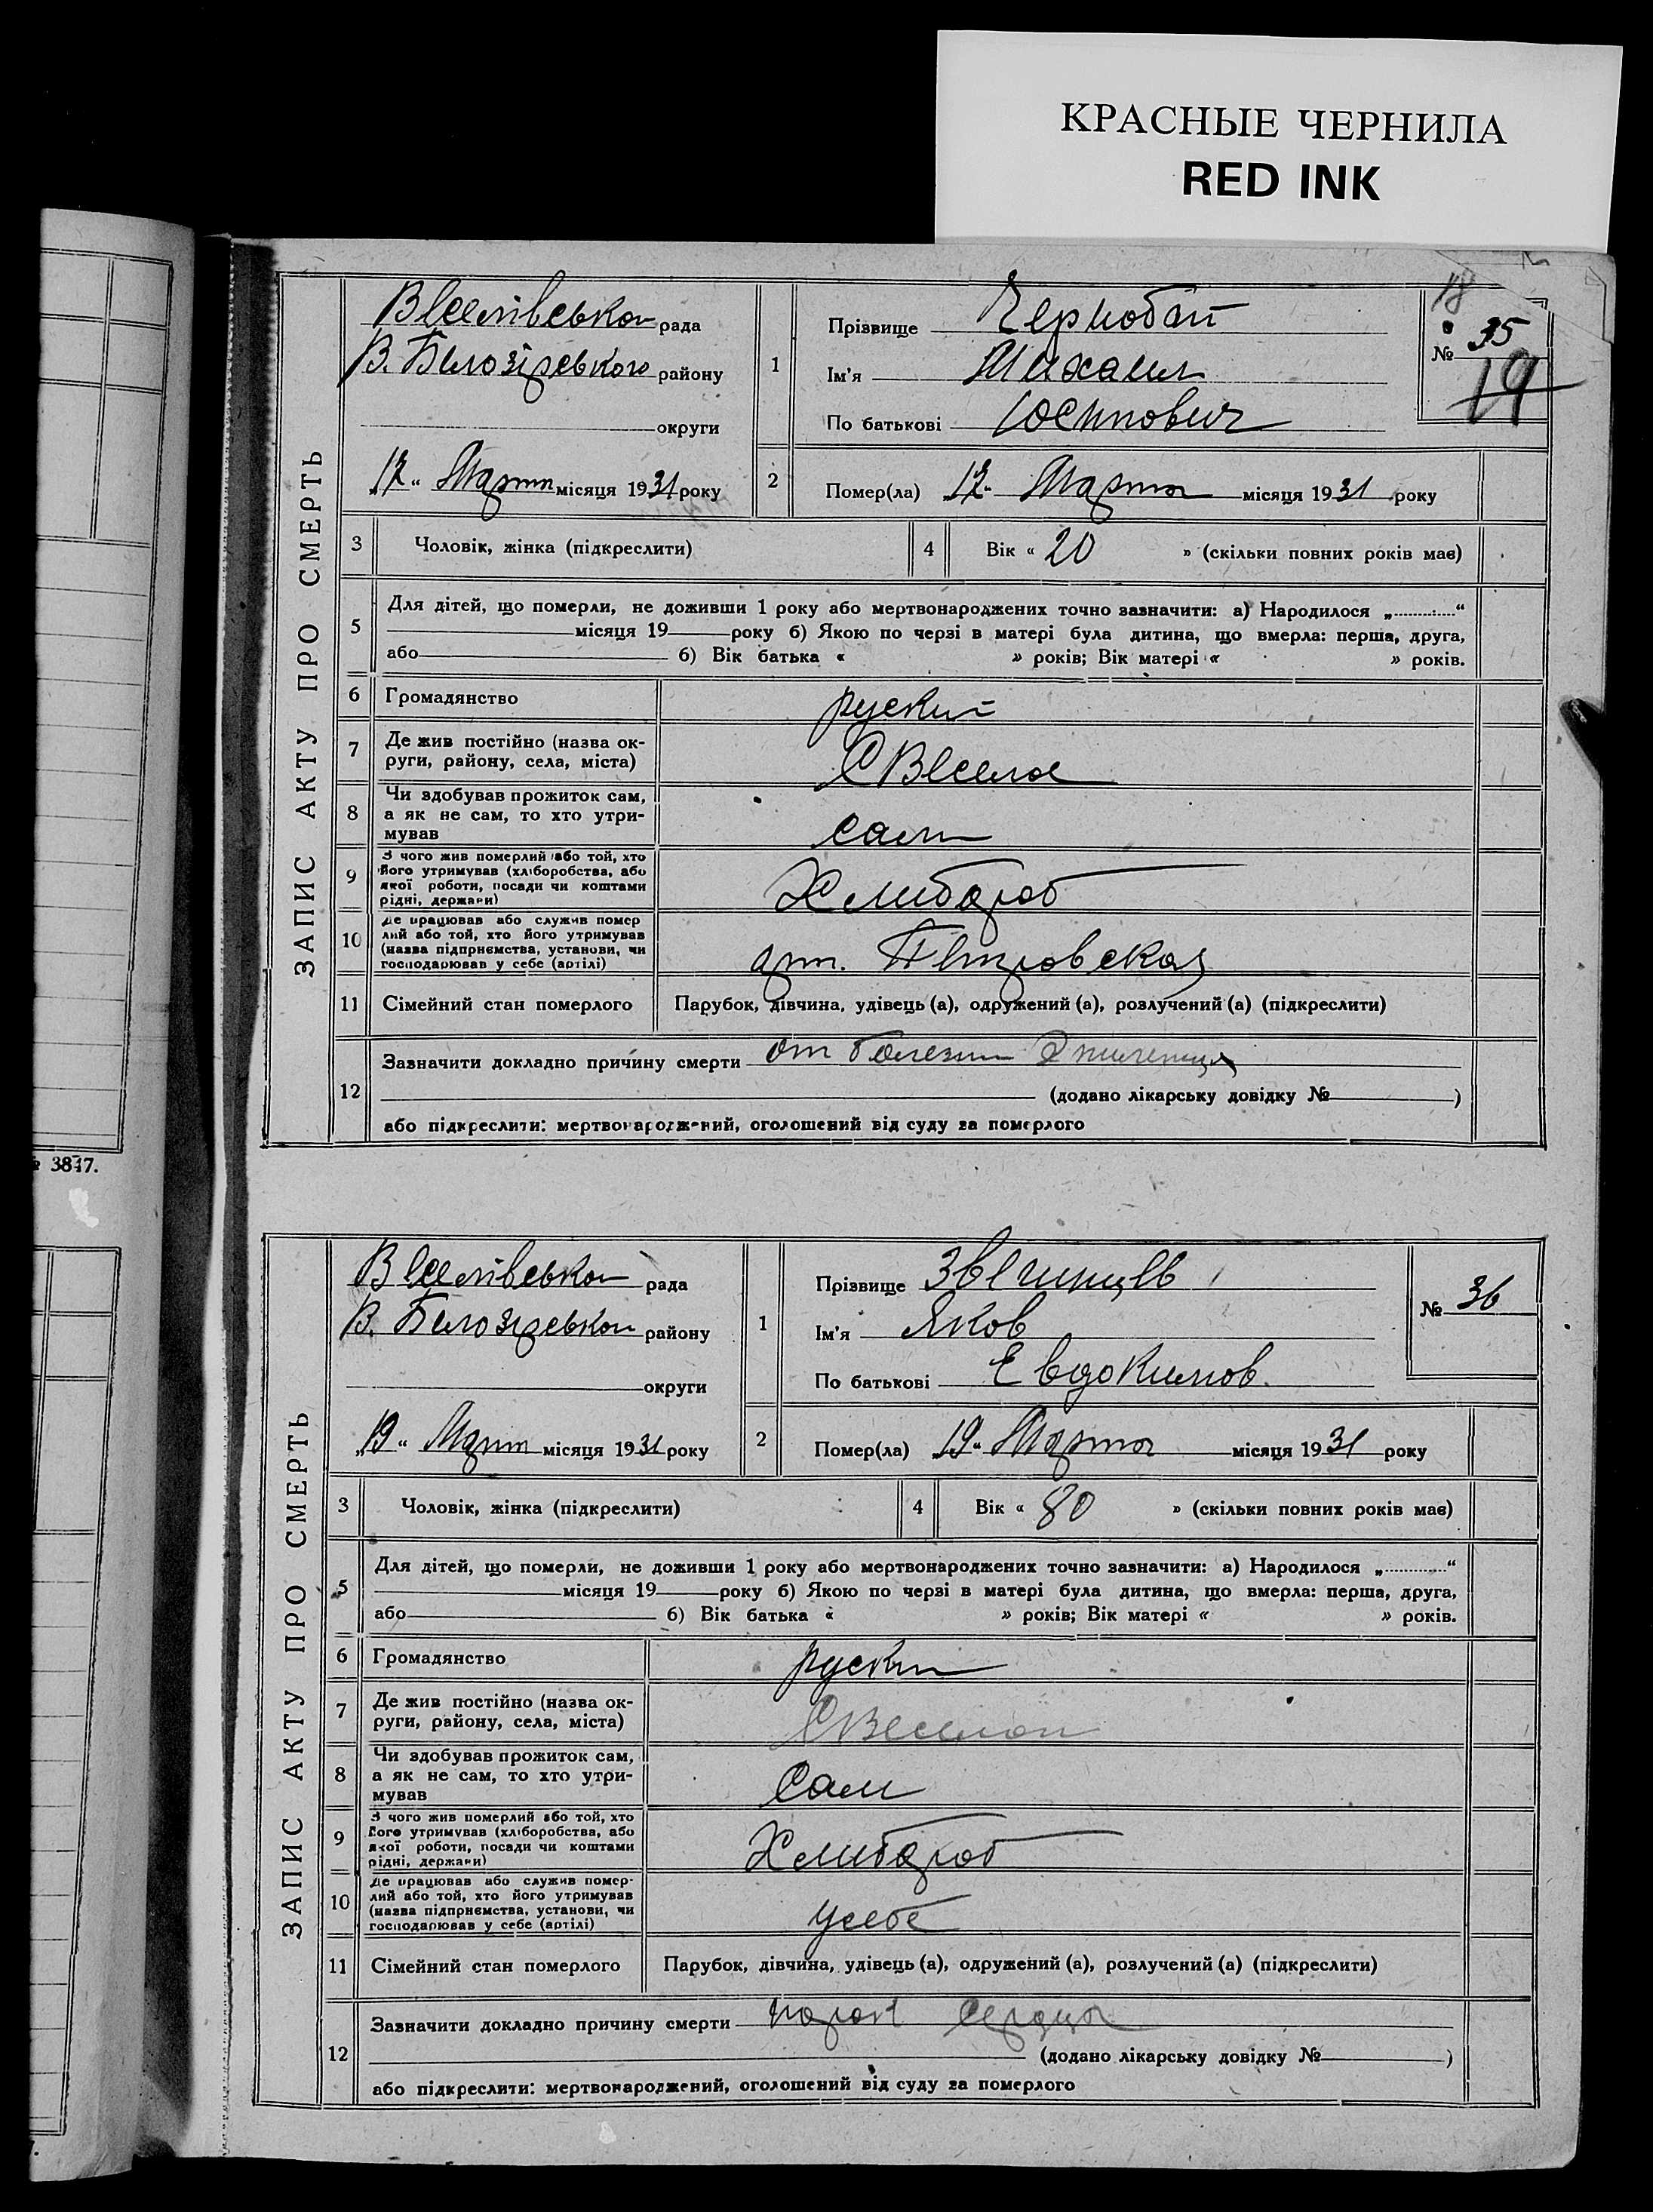 КРАСНЫЕ ЧЕРНИЛА
RED INK
№ 3847.
ЗАПИС АКТУ ПРО СМЕРТЬ
Веселівськой рада
В. Білозірського району
округи
„12“ Март місяця 1931 року
1
Прізвище Чернобай
Ім'я Михаил
По батькові Юсипович
18
№ 35
19
2
Помер(ла) 12 Марта місяця 1931 року
3 Чоловік, жінка (підкреслити)
4 Вік « 20 » (скільки повних років має)
5 Для дітей, що померли, не доживши 1 року або мертвонароджених точно зазначити: а) Народилося „ “
місяця 19 року б) Якою по черзі в матері була дитина, що вмерла: перша, друга,
або б) Вік батька « » років; Вік матері « » років.
6 Громадянство руский
7 Де жив постійно (назва ок-
руги, району, села, міста) С Веселое
8 Чи здобував прожиток сам,
а як не сам, то хто утри-
мував сам
9 З чого жив померлий або той, хто
його утримував (хліборобства, або
якої роботи, посади чи коштами
рідні, держави) Хлибороб
10 Де працював або служив помер
лий або той, хто його утримував
(назва підприємства, установи, чи
господарював у себе (артілі) арт. Петровская
11 Сімейний стан померлого Парубок, дівчина, удівець (а), одружений (а), розлучений (а) (підкреслити)
12 Зазначити докладно причину смерти от болезни
(додано лікарську довідку № )
або підкреслити: мертвонароджений, оголошений від суду за померлого
ЗАПИС АКТУ ПРО СМЕРТЬ
Веселівськой рада
В. Білозірськой району
округи
„19“ Март місяця 1931 року
1
Прізвище Звегинцев
Ім'я Яков
По батькові Евдокимов.
№ 36
2
Помер(ла) 19 Марта місяця 1931 року
3 Чоловік, жінка (підкреслити)
4 Вік « 80 » (скільки повних років має)
5 Для дітей, що померли, не доживши 1 року або мертвонароджених точно зазначити: а) Народилося „ “
місяця 19 року б) Якою по черзі в матері була дитина, що вмерла: перша, друга,
або б) Вік батька « » років; Вік матері « » років.
6 Громадянство руский
7 Де жив постійно (назва ок-
руги, району, села, міста) С Веселой
8 Чи здобував прожиток сам,
а як не сам, то хто утри-
мував Сам
9 З чого жив померлий або той, хто
його утримував (хліборобства, або
якої роботи, посади чи коштами
рідні, держави) Хлибороб
10 Де працював або служив помер-
лий або той, хто його утримував
(назва підприємства, установи, чи
господарював у себе (артілі) усебе
11 Сімейний стан померлого Парубок, дівчина, удівець (а), одружений (а), розлучений (а) (підкреслити)
12 Зазначити докладно причину смерти порок сердца
(додано лікарську довідку № )
або підкреслити: мертвонароджений, оголошений від суду за померлого